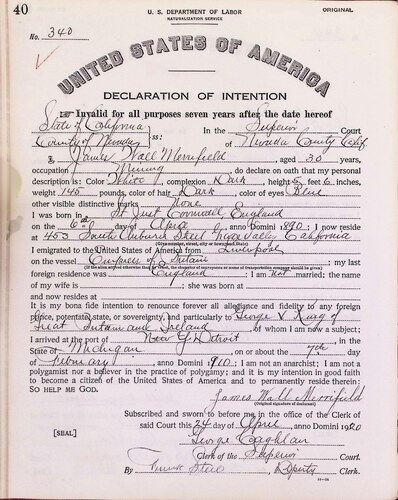 40
U. S. DEPARTMENT OF LABOR
NATURALIZATION SERVICE
ORIGINAL
No. 340
UNITED STATES OF AMERICA
DECLARATION OF INTENTION
Invalid for all purposes seven years after the date hereof
State of California
County of Nevada ss:
In the Superior Court
of Nevada County Calif.
I, James Wall Merrifield, aged 30 years,
occupation Mining, do declare on oath that my personal
description is: Color White, complexion Dark, height 5 feet 6 inches,
weight 145 pounds, color of hair Dark, color of eyes Blue
other visible distinctive marks None
I was born in St Just Cornwall, England
on the 6th day of April, anno Domini 1890; I now reside
at 453 South Auburn Street Grass Valley California
(Give number, street, city or town, and State)
I emigrated to the United States of America from Liverpool
on the vessel Empress of Britain; my last
(If the alien arrived otherwise than by vessel, the character of conveyance or name of transportation company should be given)
foreign residence was England; I am not married; the name
of my wife is; she was born at
and now resides at
It is my bona fide intention to renounce forever all allegiance and fidelity to any foreign
prince, potentate, state, or sovereignty, and particularly to George V King of
Great Britain and Ireland, of whom I am now a subject;
I arrived at the port of Detroit, in the
State of Michigan, on or about the 7th day
of February, anno Domini 1910; I am not an anarchist; I am not a
polygamist nor a believer in the practice of polygamy; and it is my intention in good faith
to become a citizen of the United States of America and to permanently reside therein:
SO HELP ME GOD.
James Wall Merrifield
(Original signature of declarant)
Subscribed and sworn to before me in the office of the Clerk of
said Court this 24 day of April, anno Domini 1920
[SEAL]
George Coughlan
Clerk of the Superior Court.
By Deputy Clerk.